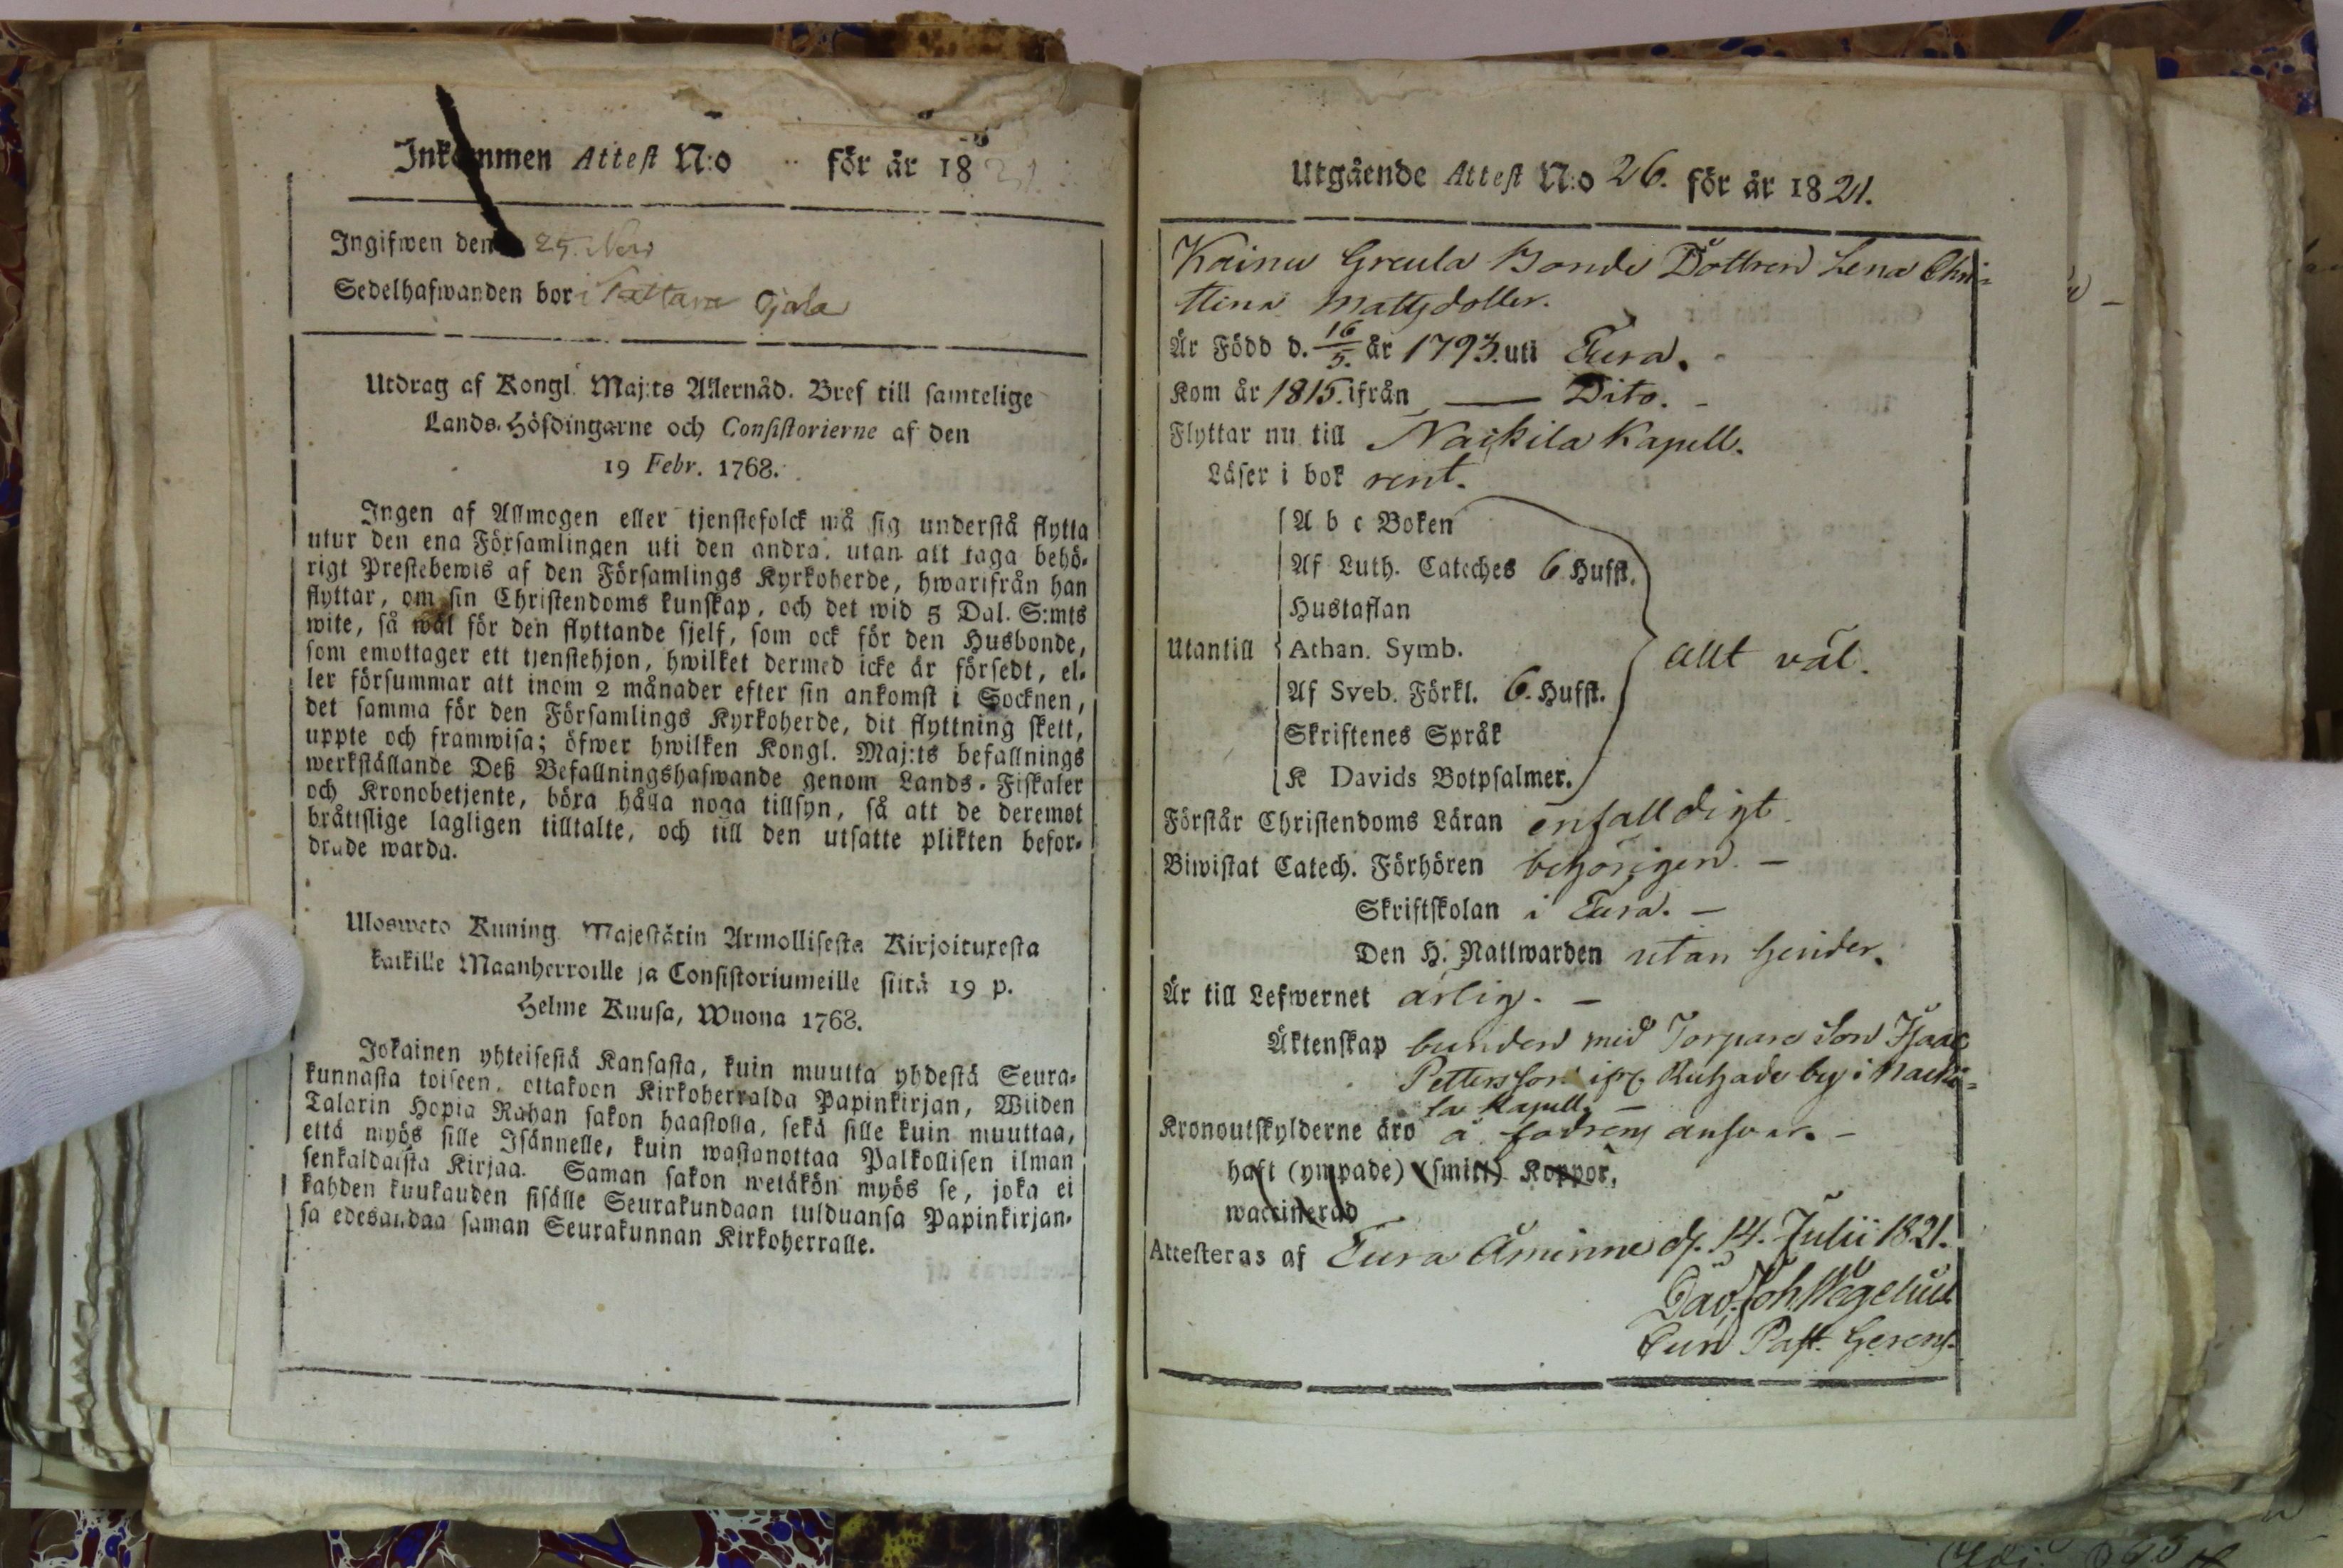 Inkommen Attest N:o för är 1821.
Ingifwen den 25. Nov
Sedelhafwanden bor i Tattara
Utdrag af Kongl. Maj:ts Allernåd. Bref till samtelige
Lands-Höfdingarne och Consistorierne af den
19 Febr. 1768.
Ingen af Allmogen eller tjenstefolck må sig understå flytta
utur den ena Församlingen uti den andra, utan att taga behö-
rigt Prestebewis af den Församlings Kyrkoherde, hwarifrån han
flyttar, om sin Christendoms kunskap, och det wid 5 Dal. S:mts
wite, så wäl för den flyttande sjelf, som ock för den Husbonde,
som emottager ett tjenstehjon, hwilket dermed icke är försedt, el-
ler försummar att inom 2 månader efter sin ankomst i Socknen,
det samma för den Församlings Kyrkoherde, dit flyttning skett,
uppte och framwisa; öfwer hwilken Kongl. Maj:ts befallnings
werkställande Deß Befallningshafwande genom Lands-Fiskaler
och Kronobetjente, böra hålla noga tillsyn, så att de deremot
bråttslige lagligen tilltalte, och till den utsatte plikten befor-
drade warda.
Ulosweto Kuning. Majestätin Armollisesta Kirjoituxesta
kaikille Maanherroille ja Consistoriumeille siitä 19 p.
Helme Kuusa, Wuona 1768.
Jokainen yhteisestä Kansasta, kuin muutta yhdestä Seura-
kunnasta toiseen, ottakoon Kirkoherralda Papinkirjan, Wiiden
Talarin Hopia Rahan sakon haastolla, sekä sille kuin muuttaa,
että myös sille Isännelle, kuin wastanottaa Palkollisen ilman
senkaldaista Kirjaa. Saman sakon wetäkön myös se, joka ei
kahden kuukauden sisälle Seurakundaan tulduansa Papinkirjan-
sa edesandaa saman Seurakunnan Kirkoherralle.
Utgående Attest N:o 26. för är 1821.
Kainu Greula Bonde Dottren Lena Chri-
stina Mattsdotter.
Är Född d. 16/5. år 1793. uti Eura.
Kom år 1815. ifrån — Dito. -
Flyttar nu till Nackila Kapell.
Läser i bok rent.
A b c Boken
Af Luth. Cateches 6 Hufst.
Hustaflan
Utantill Athan. Symb. allt väl.
Af Sveb. Förkl. 6. Hufst.
Skriftenes Språk
K Davids Botpsalmer.
Förstår Christendoms Läran enfalldigt.
Biwistat Catech. Förhören behörigen. —
Skriftskolan i Eura. —
Den H. Nattwarden utan hinder.
Är till Lefwernet ärlig. —
Äktenskap bunden med Torpare Son Isaac
Pettersson ifr. by i Nacki-
la Kapell. —
Kronoutskylderne äro å fadrens answar. —
haft (ympade) (smitt) Koppor,
waccinerad
Attesteras af Eura Åminne d. 14. Julii 1821.
Dav. Joh. Wegelius
Past. Gerens.